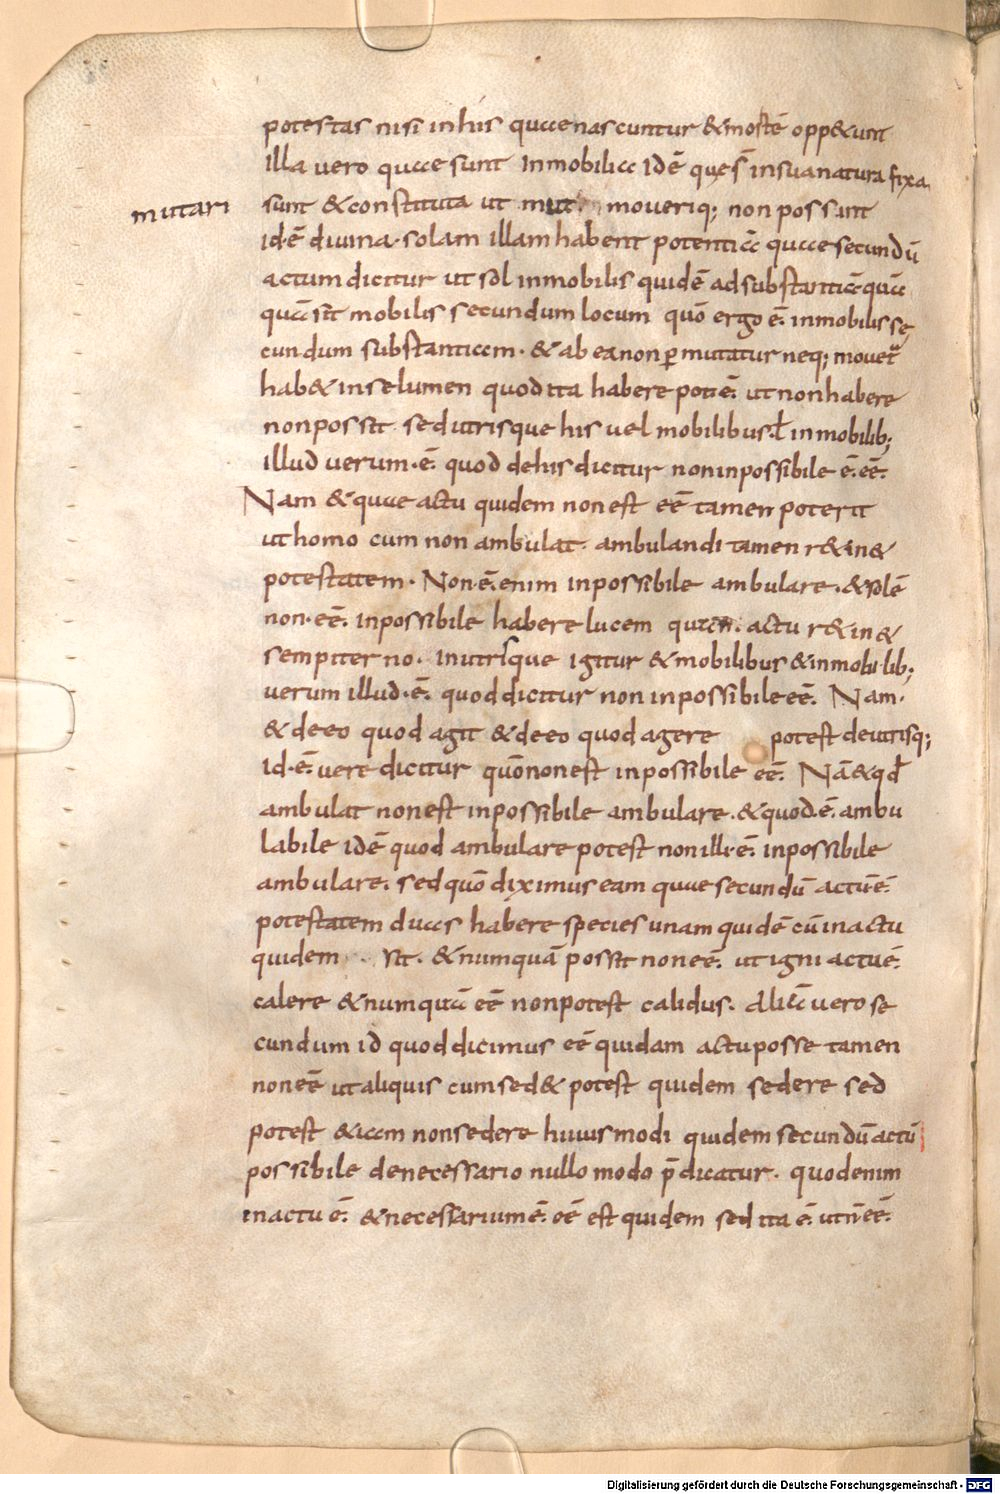 potestas nisi in his quae nascuntur & mortē opp&unt
illa vero quae sunt inmobilia idē quęs̄ in sua natura fixa
mutari
sunt & constituta ut mut moueriq; non possunt
id·ē diuina· solam illam habent potentiā quae secundū
actum dicitur ut sol inmobilis quidē ad substantiā quā
quā sit mobilis secundum locum quō ergo ē· inmobilis sę
cundum substantiam· & ab ea non ꝑmutatur neq; mouet᷑
hab& in se lumen quod ita habere pot·ē· ut non habere
non possit· sed utrisque his uel mobilibus·ł inmobilib;
illud uerum·ē· quod de his dicitur non inpossibile ē· eē·
Nam & quae actu quidem non est eē tamen poterit
ut homo cum non ambulat· ambulandi tamen r&in&
potestatem· Non·ē·enim inpossibile ambulare·& solē
non·eē· inpossibile habere lucem quā actu r&in&
sempiterno· in utrisque igitur & mobilibus & inmobilib;
uerum illud·ē· quod dicitur non inpossibile eē· Nam·
& de eo quod agit & de eo quod agere potest de utrisq;
id·ē· uere dicitur quōn non est inpossibile eē· Nā & qđ
ambulat non est inpossibile ambulare·& quod·ē· ambu
labile idē quod ambulare potest non illi·ē· inpossibile
ambulare· sed quō diximus eam quae secundū actū·ē·
potestatem duas habere species unam quidē cū in actu
quidem sit· & numquā possit non eē· ut igni actu·ē·
calere & numquā eē non potest calidus· Aliā uero se
cundum id quod dicimus eē quidam actu posse tamen
non eē ut aliquis cum sed& potest quidem sedere sed
potest &iam non sedere huiusmodi quidem secundū actū
possibile de necessario nullo modo p̄dicatur· quod enim
in actu ē· & necessarium ē· eē est quidem sed ita ē· ut n̄ eē·
Digitalisierung gefördert durch die Deutsche Forschungsgemeinschaft - DFG